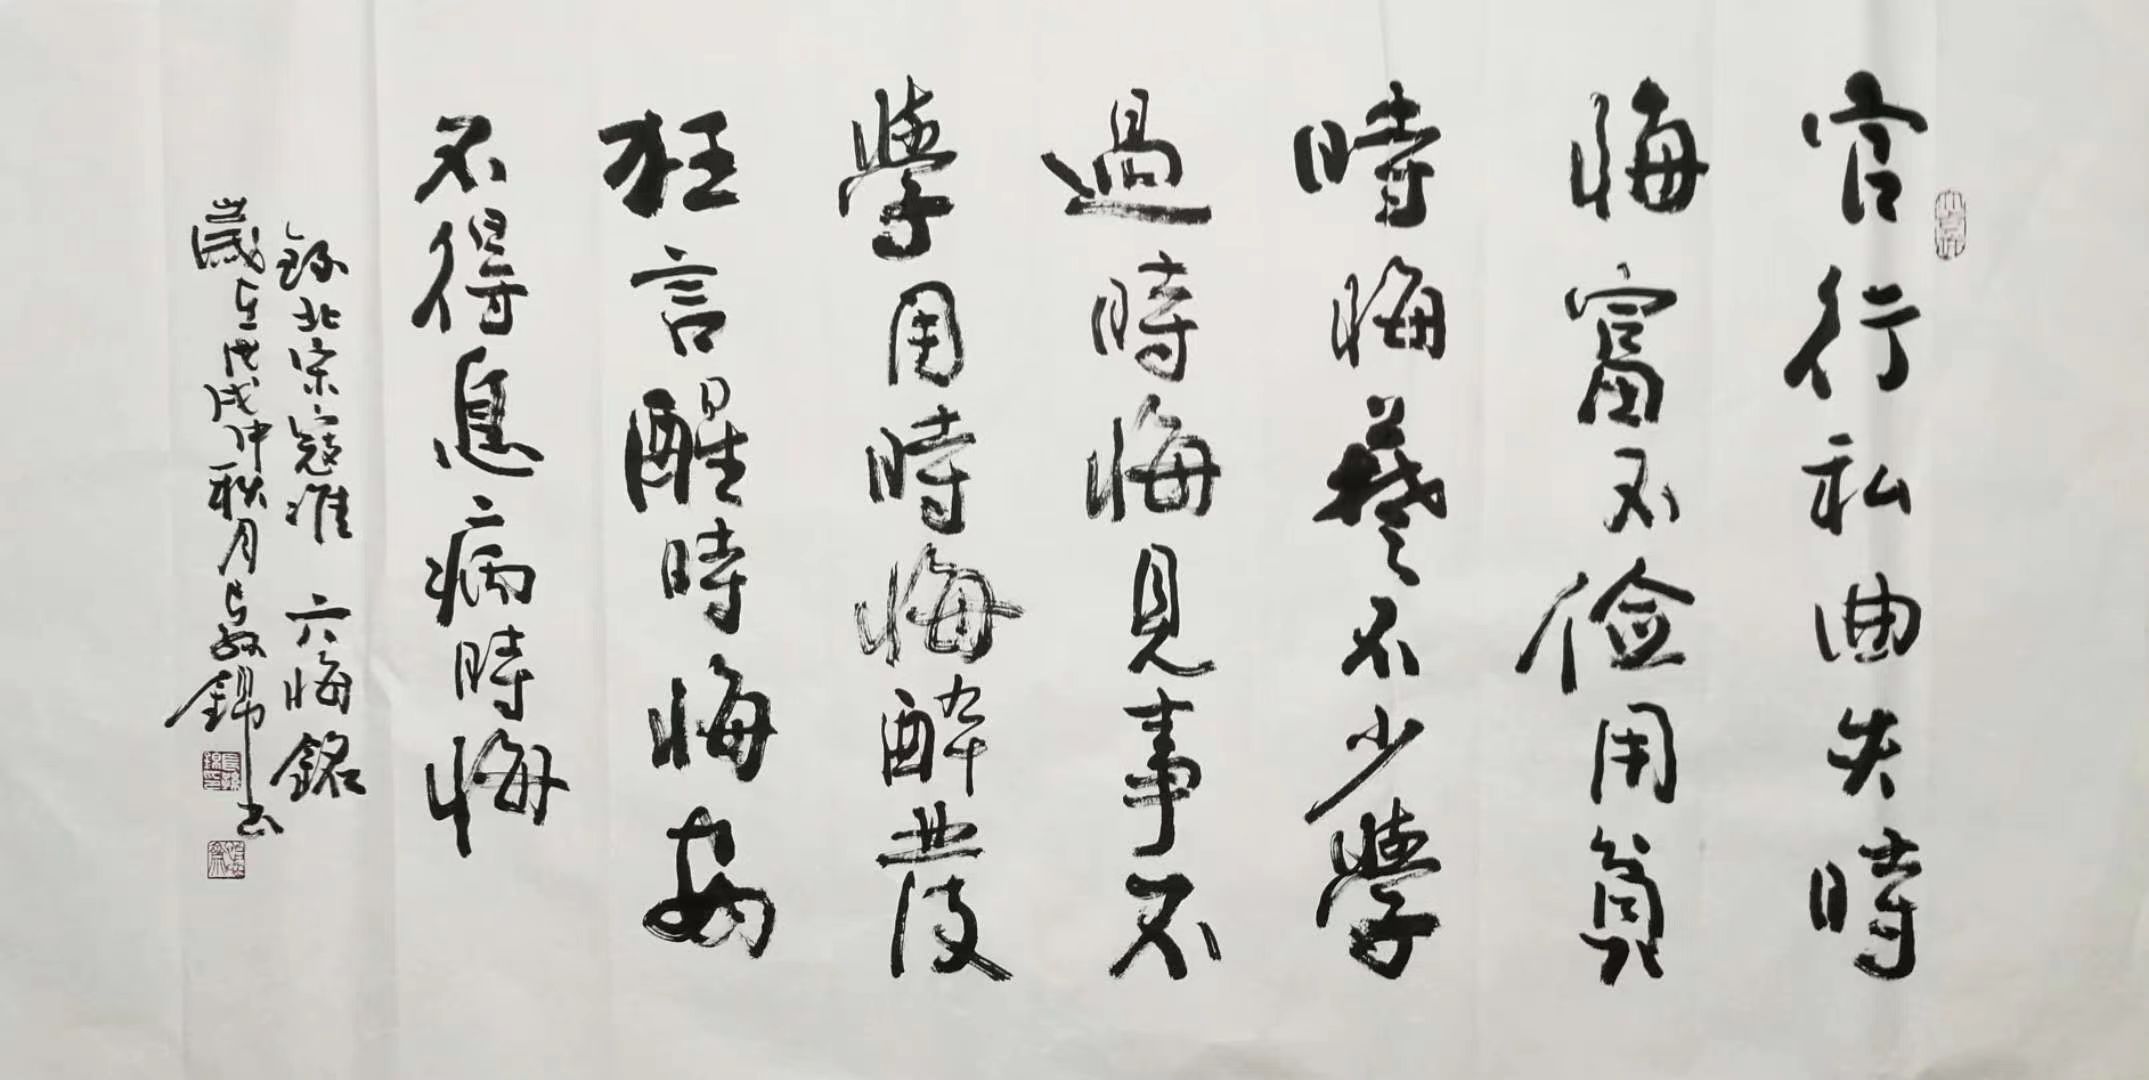 官行私曲失時
悔富不儉用貧
時悔藝不少學
過時悔見事不
學用時悔醉發
狂言醒時悔安
不得息病時悔
錄北宋寇準六悔銘
歲在戊戌仲秋月長錦書